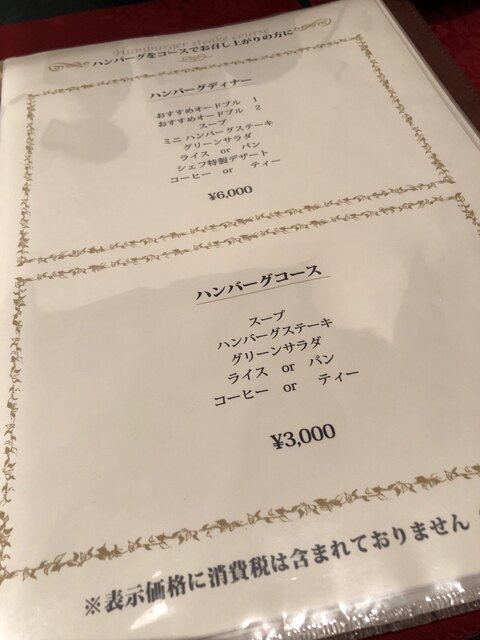 Humburger steake course
ハンバーグをコースでお召し上がりの方に
ハンバーグディナー
おすすめオードブル 1
おすすめオードブル 2
スープ
ミニ ハンバーグステーキ
グリーンサラダ
ライス or パン
シェフ特製デザート
コーヒー or ティー
¥6,000
ハンバーグコース
スープ
ハンバーグステーキ
グリーンサラダ
ライス or パン
コーヒー or ティー
¥3,000
※表示価格に消費税は含まれておりません